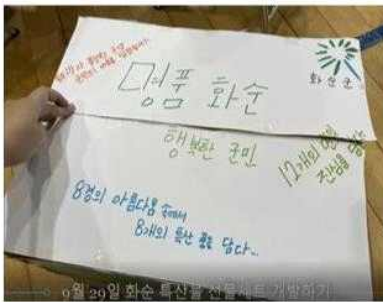 화순군
명품 화순
행복한 군민
12개의 읍면
진심을 담다
8경의 아름다움 속에서
8개의 특산 품을 담다...
9월 29일 화순 특산물 선물세트 개발하기